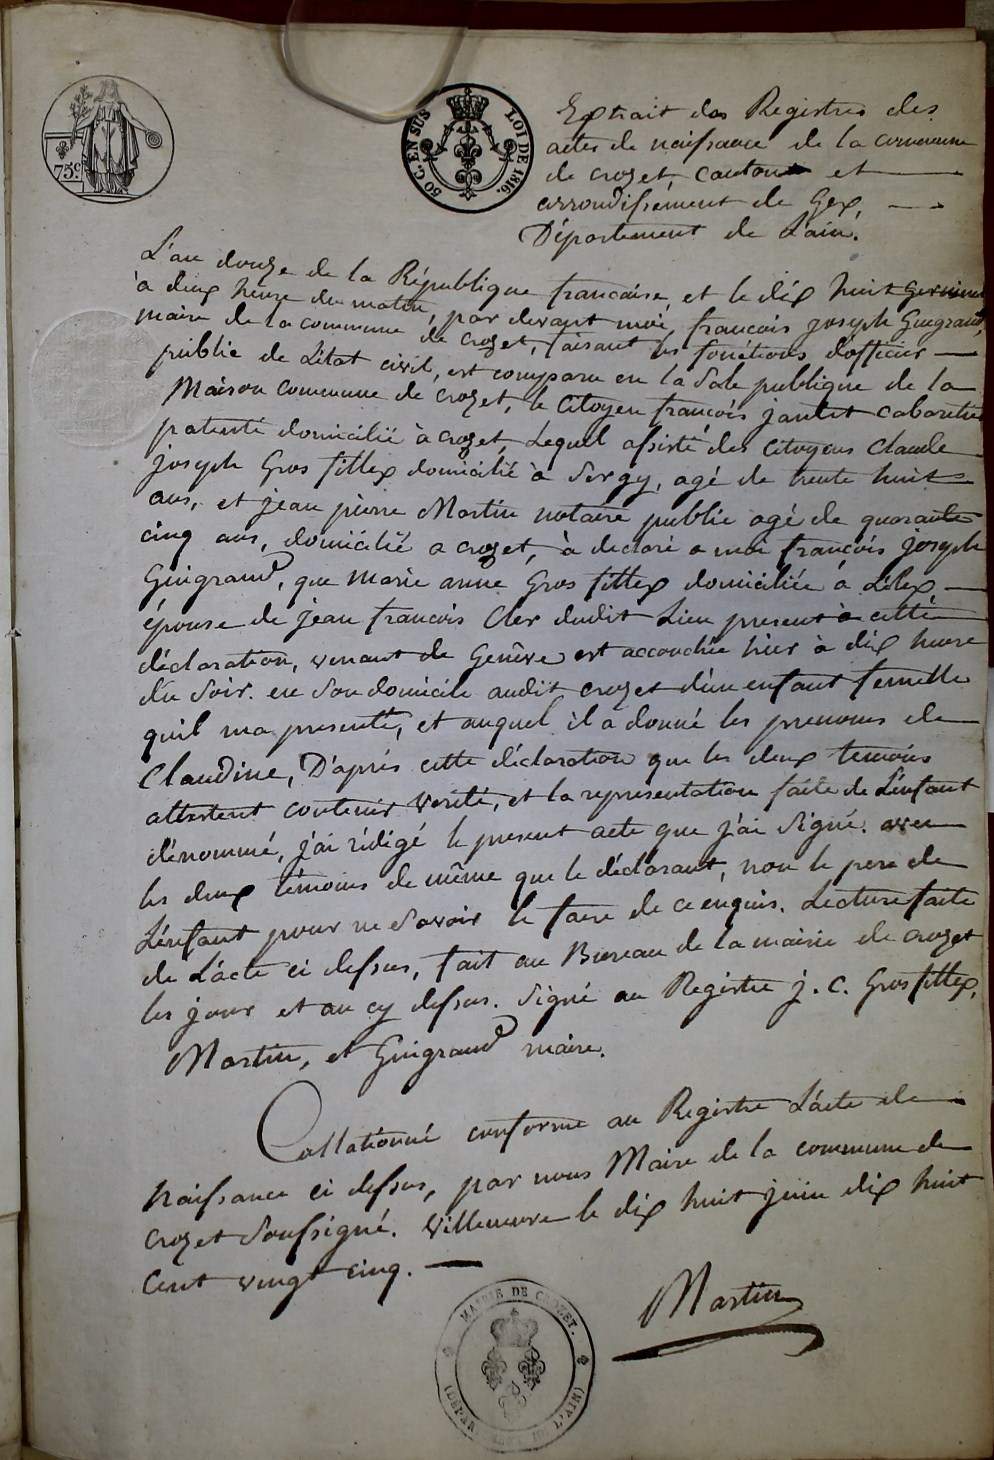 75c.
50 C. EN SUS
LOI DE 1816.
Extrait des Registres des
actes de naissance de la commune
de crozet, canton et
arrondissement de Gex,
Département de L'ain.
L'an douze de la République francaise, et le dix huit Germinal
à deux heure du matin, par devant moi, francois joseph Guigrand,
maire de la commune de crozet, faisant les fonctions d'officier
public de L'état civil, est comparu en la Sale publique de la
Maison commune de crozet, le Citoyen francois jantet cabaretier
patenté domicilié à crozet, Lequel assisté des Citoyens Claude
joseph Gros fillex domicilié à Sergy, agé de trente huit
ans, et jean pierre Martin notaire public agé de quarante
cinq ans, domicilié a crozet, à declaré a moi francois joseph
Guigrand, que marie anne Gros fillex domiciliée à Lélex
épouse de jean francois Cler dudit Lieu present à cette
déclaration, venant de Genêve est accouchée hier à dix heure
du soir. en son domicile audit crozet d'un enfant femelle
quil ma presenté, et auquel il a donné les prenoms de
Claudine, D'aprés cette déclaration que les deux temoins
attestent contenir verité, et la representation faite de L'enfant
dénommé, j'ai rédigé le present acte que j'ai signé. avec
les deux témoins de même que le déclarant, non le pere de
L'enfant pour ne savoir le faire de ce enquis. Lecture faite
de L'acte ci dessus, fait au Bureau de la mairie de crozet
les jour et an cy dessus. Signé au Registre j. C. Gros fillex,
Martin, et Guigrand maire.
Collationné conforme au Registre L'acte de
Naissance ci dessus, par nous Maire de la commune de
crozet Soussigné. Villeneuve le dix huit juin dix huit
Cent vingt cinq.
Martin
MAIRIE DE CROZET.